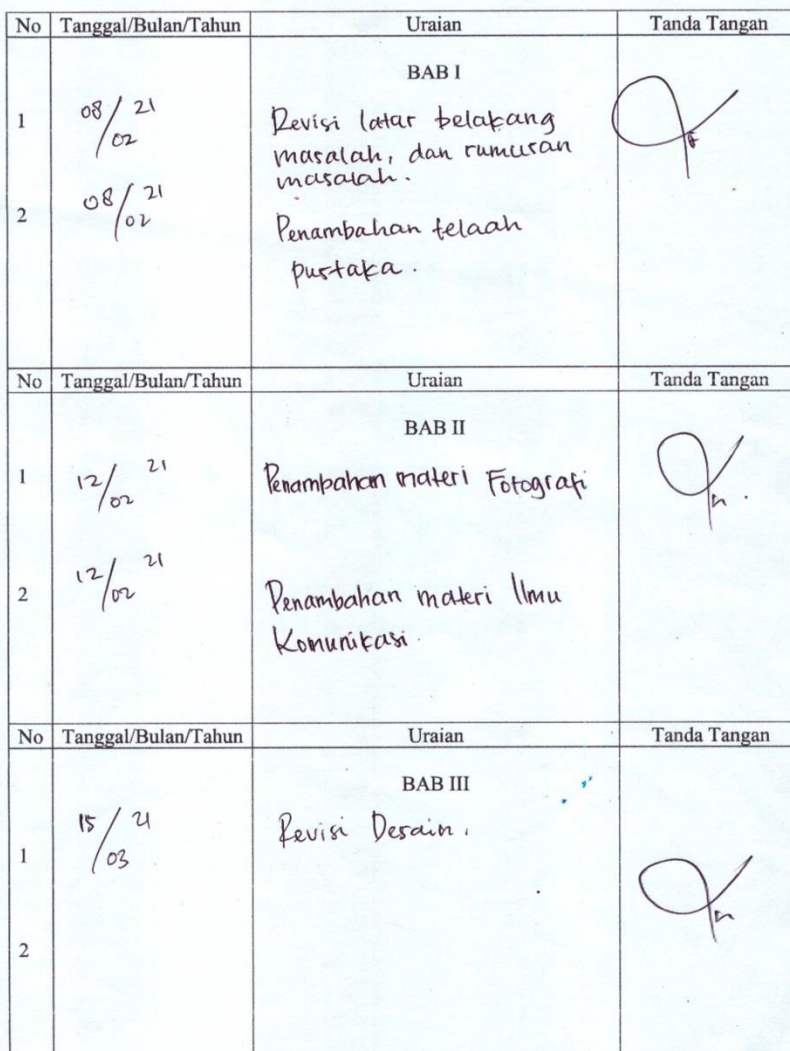 No Tanggal/Bulan/Tahun Uraian Tanda Tangan
BAB I
1 08/02 21 Revisi latar belakang
masalah, dan rumusan
masalah.
2 08/02 21 Penambahan telaah
pustaka.
No Tanggal/Bulan/Tahun Uraian Tanda Tangan
BAB II
1 12/02 21 Penambahan materi Fotografi
2 12/02 21 Penambahan materi Ilmu
Komunikasi.
No Tanggal/Bulan/Tahun Uraian Tanda Tangan
BAB III
1 15/03 21 Revisi Desain.
2